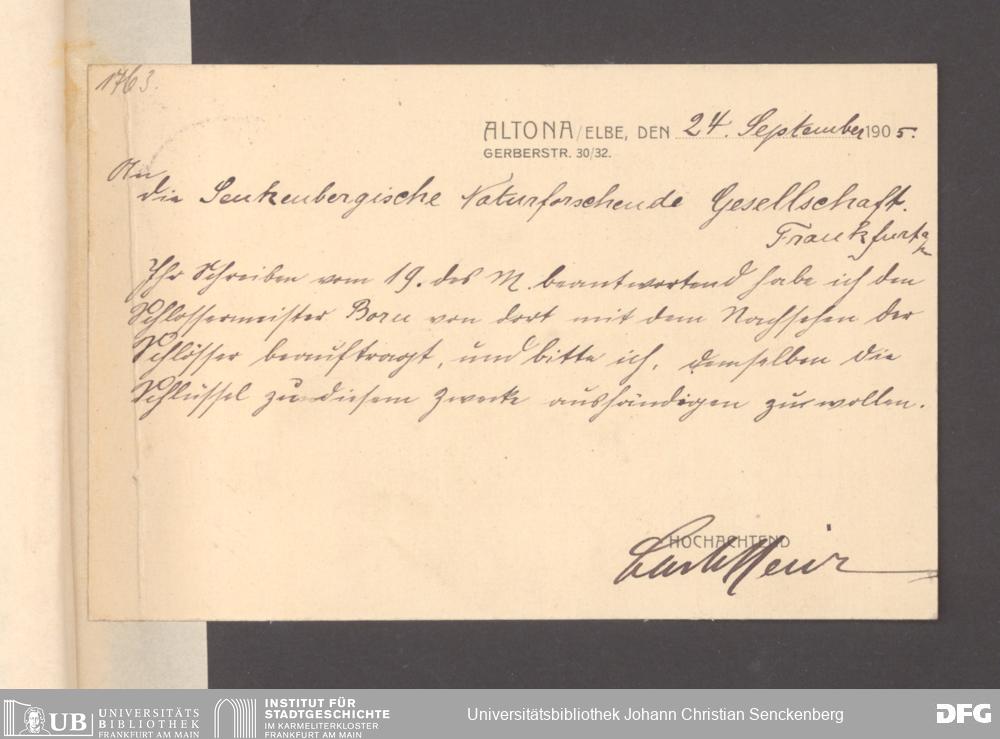 1763.
ALTONA/ELBE, DEN 24. September 1905.
GERBERSTR. 30/32.
An
die Senkenbergische Naturforschende Gesellschaft.
Frankfurt a/
Ihr Schreiben vom 19. des M. beantwortend habe ich den
Schlossermeister Born von dort mit dem Nachsehen der
Schlösser beauftragt, und bitte ich, demselben die
Schlüssel zu diesem Zwecke aushändigen zu wollen.
HOCHACHTEND
Carl
UB UNIVERSITÄTS
BIBLIOTHEK
FRANKFURT AM MAIN
INSTITUT FÜR
STADTGESCHICHTE
IM KARMELITERKLOSTER
FRANKFURT AM MAIN
Universitätsbibliothek Johann Christian Senckenberg
DFG